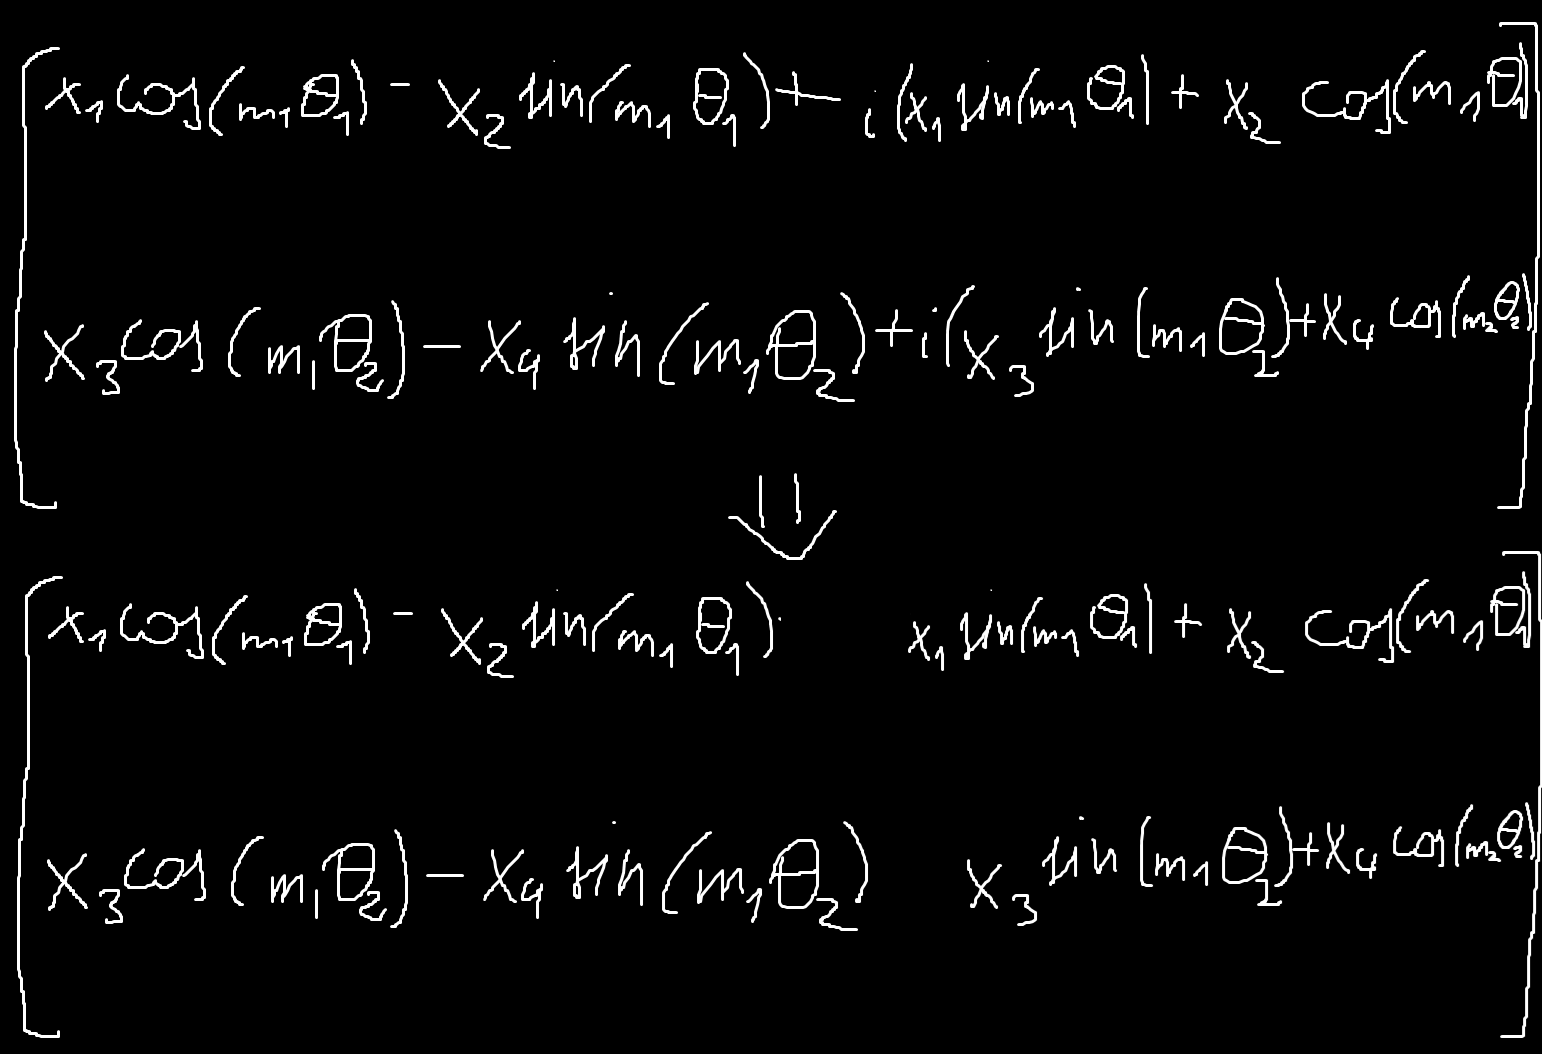 x₁cos(m₁θ₁) - x₂ sin(m₁θ₁) + i(x₁ sin(m₁θ₁) + x₂ cos(m₁θ₁)
x₃cos(m₁θ₂) - x₄ sin(m₁θ₂) + i(x₃ sin(m₁θ₂) + x₄ cos(m₂θ₂)
⇓
x₁cos(m₁θ₁) - x₂ sin(m₁θ₁) x₁ sin(m₁θ₁) + x₂ cos(m₁θ₁)
x₃cos(m₁θ₂) - x₄ sin(m₁θ₂) x₃ sin(m₁θ₂) + x₄ cos(m₂θ₂)